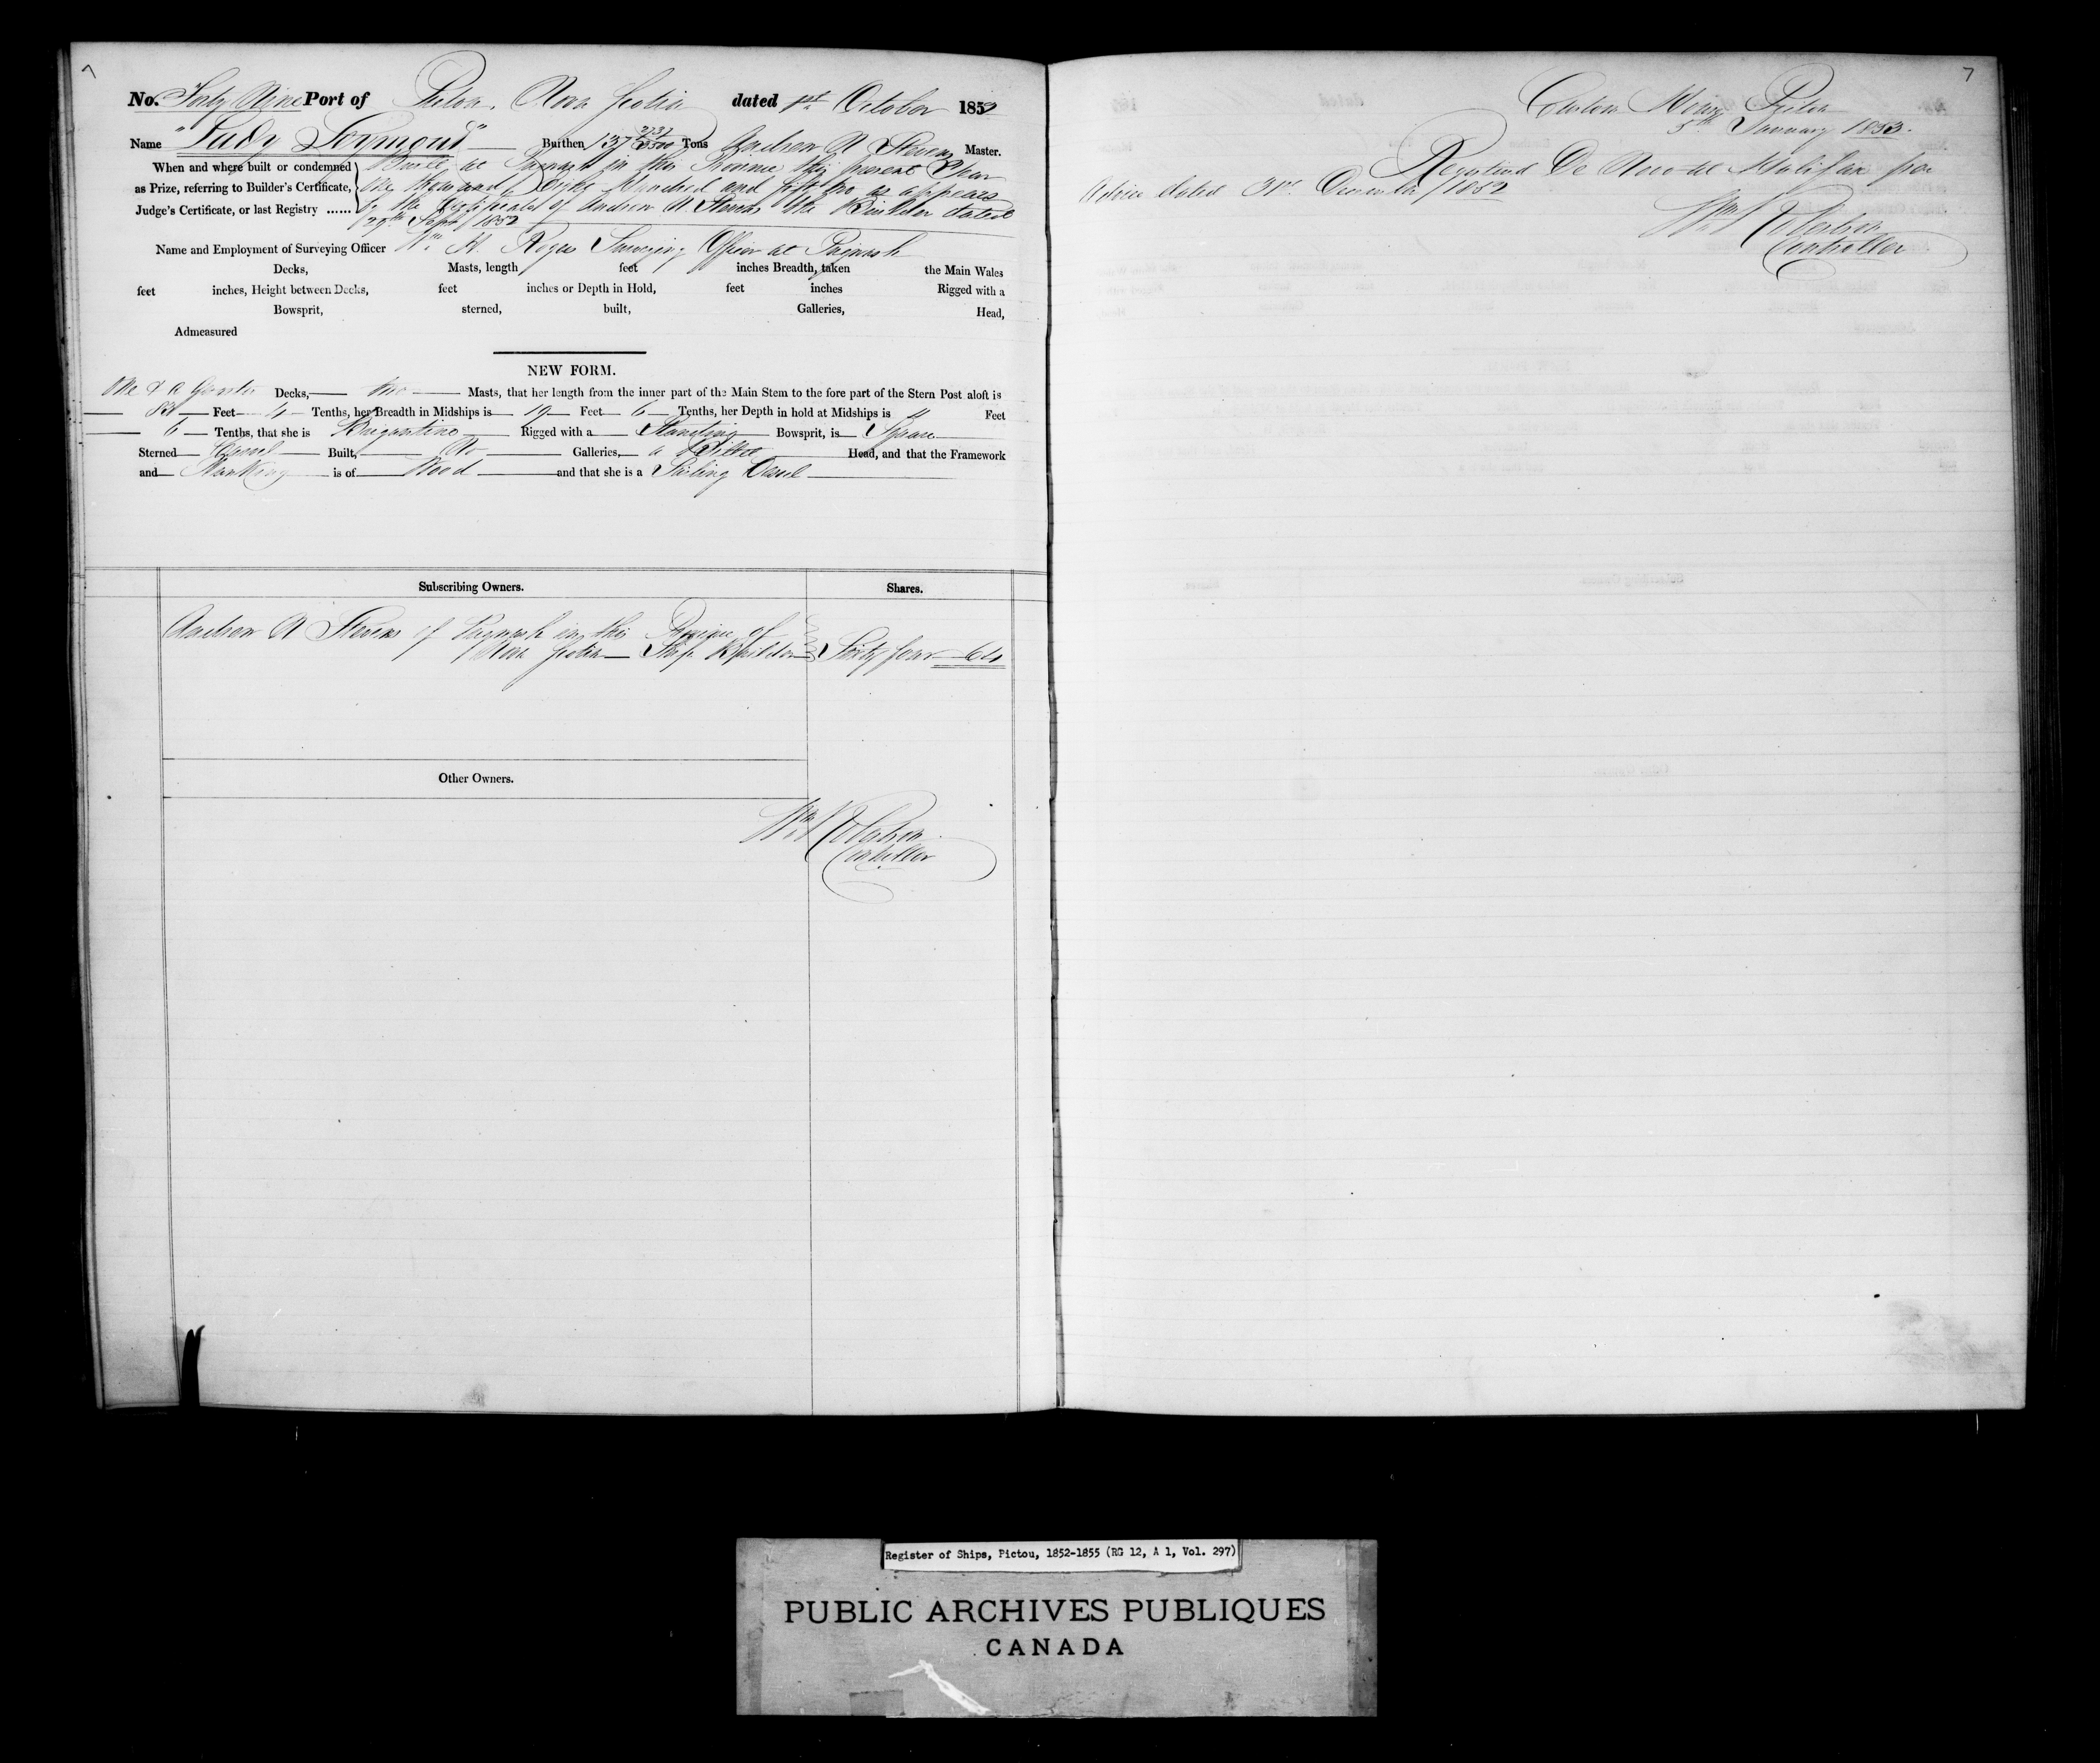 7
No. Forty Nine Port of Pictou, Nova Scotia dated 1st October 1852
Name "Lady Seymour" Burthen 137 Tons Andrew A Stevens Master.
When and where built or condemned
as Prize, referring to Builder's Certificate,
Judge's Certificate, or last Registry ......
Built at Pugwash in this Province this present Year
One thousand Eight Hundred and fifty two as appears
by the Certificate of Andrew A. Stevens the Builder dated
29th Sept 1852
Name and Employment of Surveying Officer Wm H. Roges Surveying Officer at Pugwash
Decks, Masts, length feet inches Breadth, taken the Main Wales
feet inches, Height between Decks, feet inches or Depth in Hold, feet inches Rigged with a
Bowsprit, sterned, built, Galleries, Head,
Admeasured
NEW FORM.
One & a Quarter Decks, two Masts, that her length from the inner part of the Main Stem to the fore part of the Stern Post aloft is
Feet 4 Tenths, her Breadth in Midships is 19 Feet 6 Tenths, her Depth in hold at Midships is 11 Feet
6 Tenths, that she is Brigantine Rigged with a Standing Bowsprit, is Square
Sterned Carvel Built, No Galleries, a Billet Head, and that the Framework
and Planking is of Wood and that she is a Sailing Vessel
Subscribing Owners. Shares.
Andrew A Stevens of Pugwash in this Province of
Nova Scotia Ship Builder Sixty four 64
Other Owners.
Wm Robertson
Controller
7
Custom House Pictou
5th January 1853.
Registered De Novo at Halifax per
Advice dated 31st December 1852
Wm Robertson
Controller
Register of Ships, Pictou, 1852-1855 (RG 12, A 1, Vol. 297)
PUBLIC ARCHIVES PUBLIQUES
CANADA